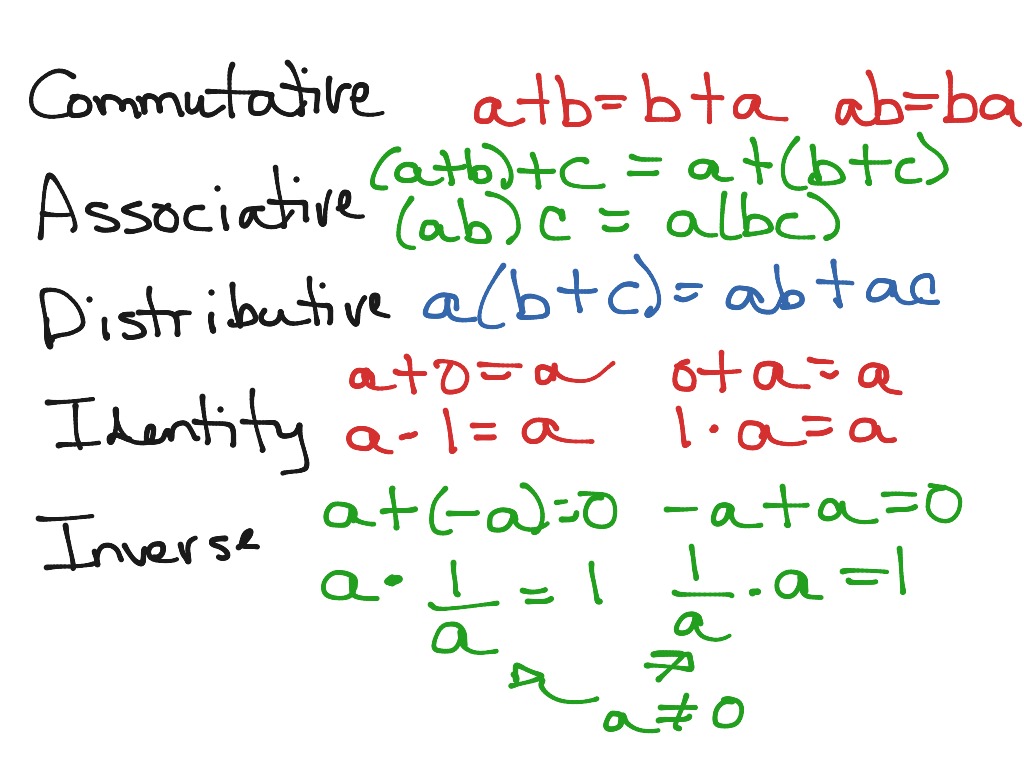 Commutative a+b=b+a ab=ba
Associative (a+b)+c = a+(b+c)
(ab)c = a(bc)
Distributive a(b+c)=ab+ac
Identity a+0=a 0+a=a
a·1=a 1·a=a
Inverse a+(-a)=0 -a+a=0
a·1/a=1 1/a·a=1
a≠0